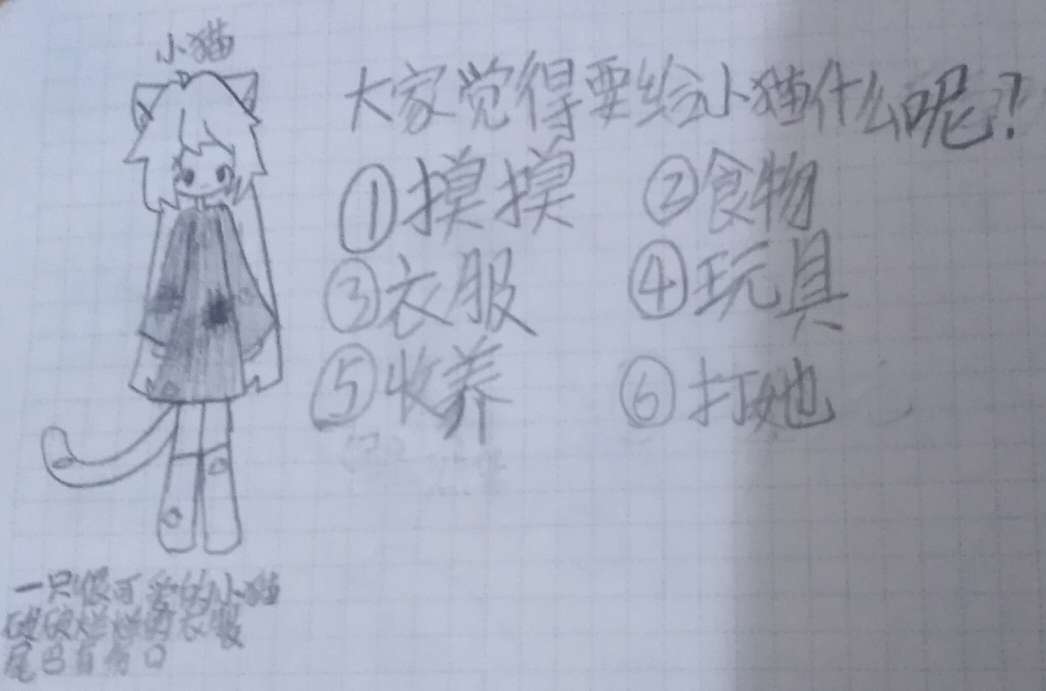 小猫
大家觉得要给小猫什么呢?
①摸摸 ②食物
③衣服 ④玩具
⑤收养 ⑥打她
一只很可爱的小猫
破破烂烂的衣服
尾巴有伤口